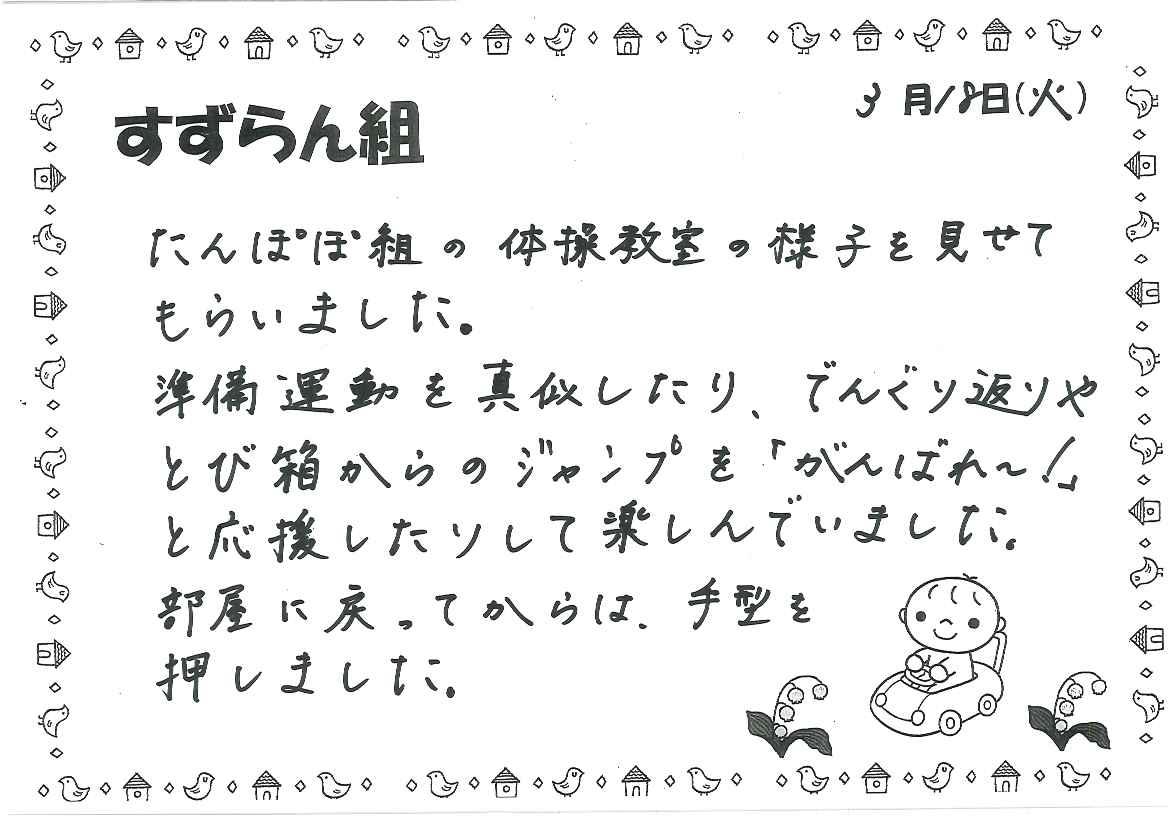 3月18日(火)
すずらん組
たんぽぽ組の体操教室の様子を見せて
もらいました。
準備運動を真似したり、でんぐり返りや
とび箱からのジャンプを「がんばれ〜!」
と応援したりして楽しんでいました。
部屋に戻ってからは、手型を
押しました。